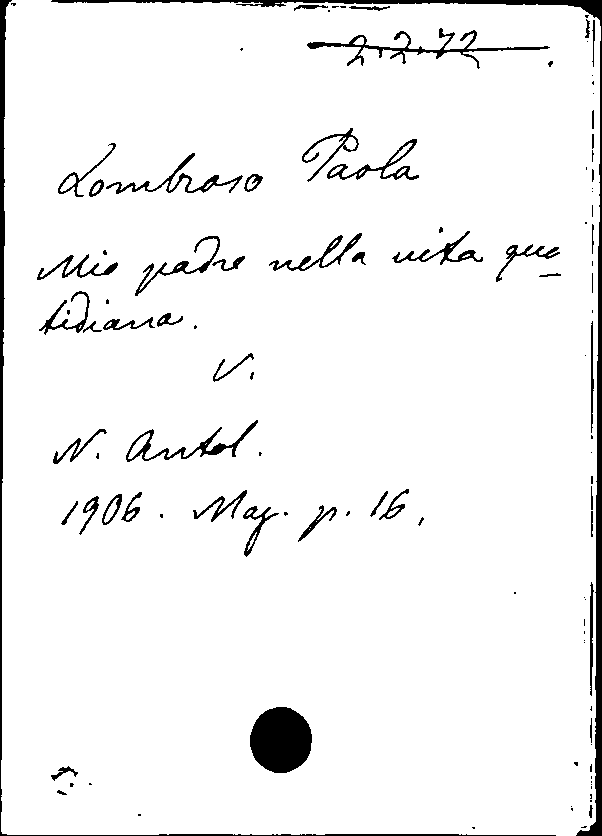 2.2.72
Lombroso Paola
Mio padre nella vita quo
tidiana.
V.
N. Antol.
1906. Mag. p. 16.